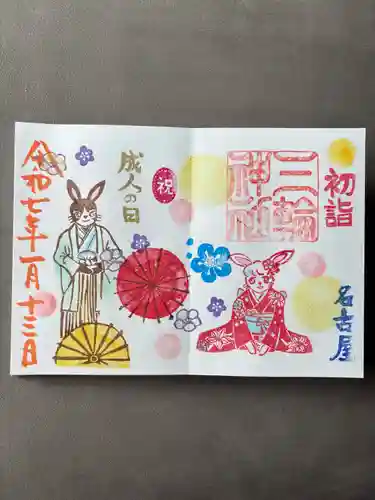 初詣
三輪
神社
名古屋
祝
成人の日
令和七年一月十三日